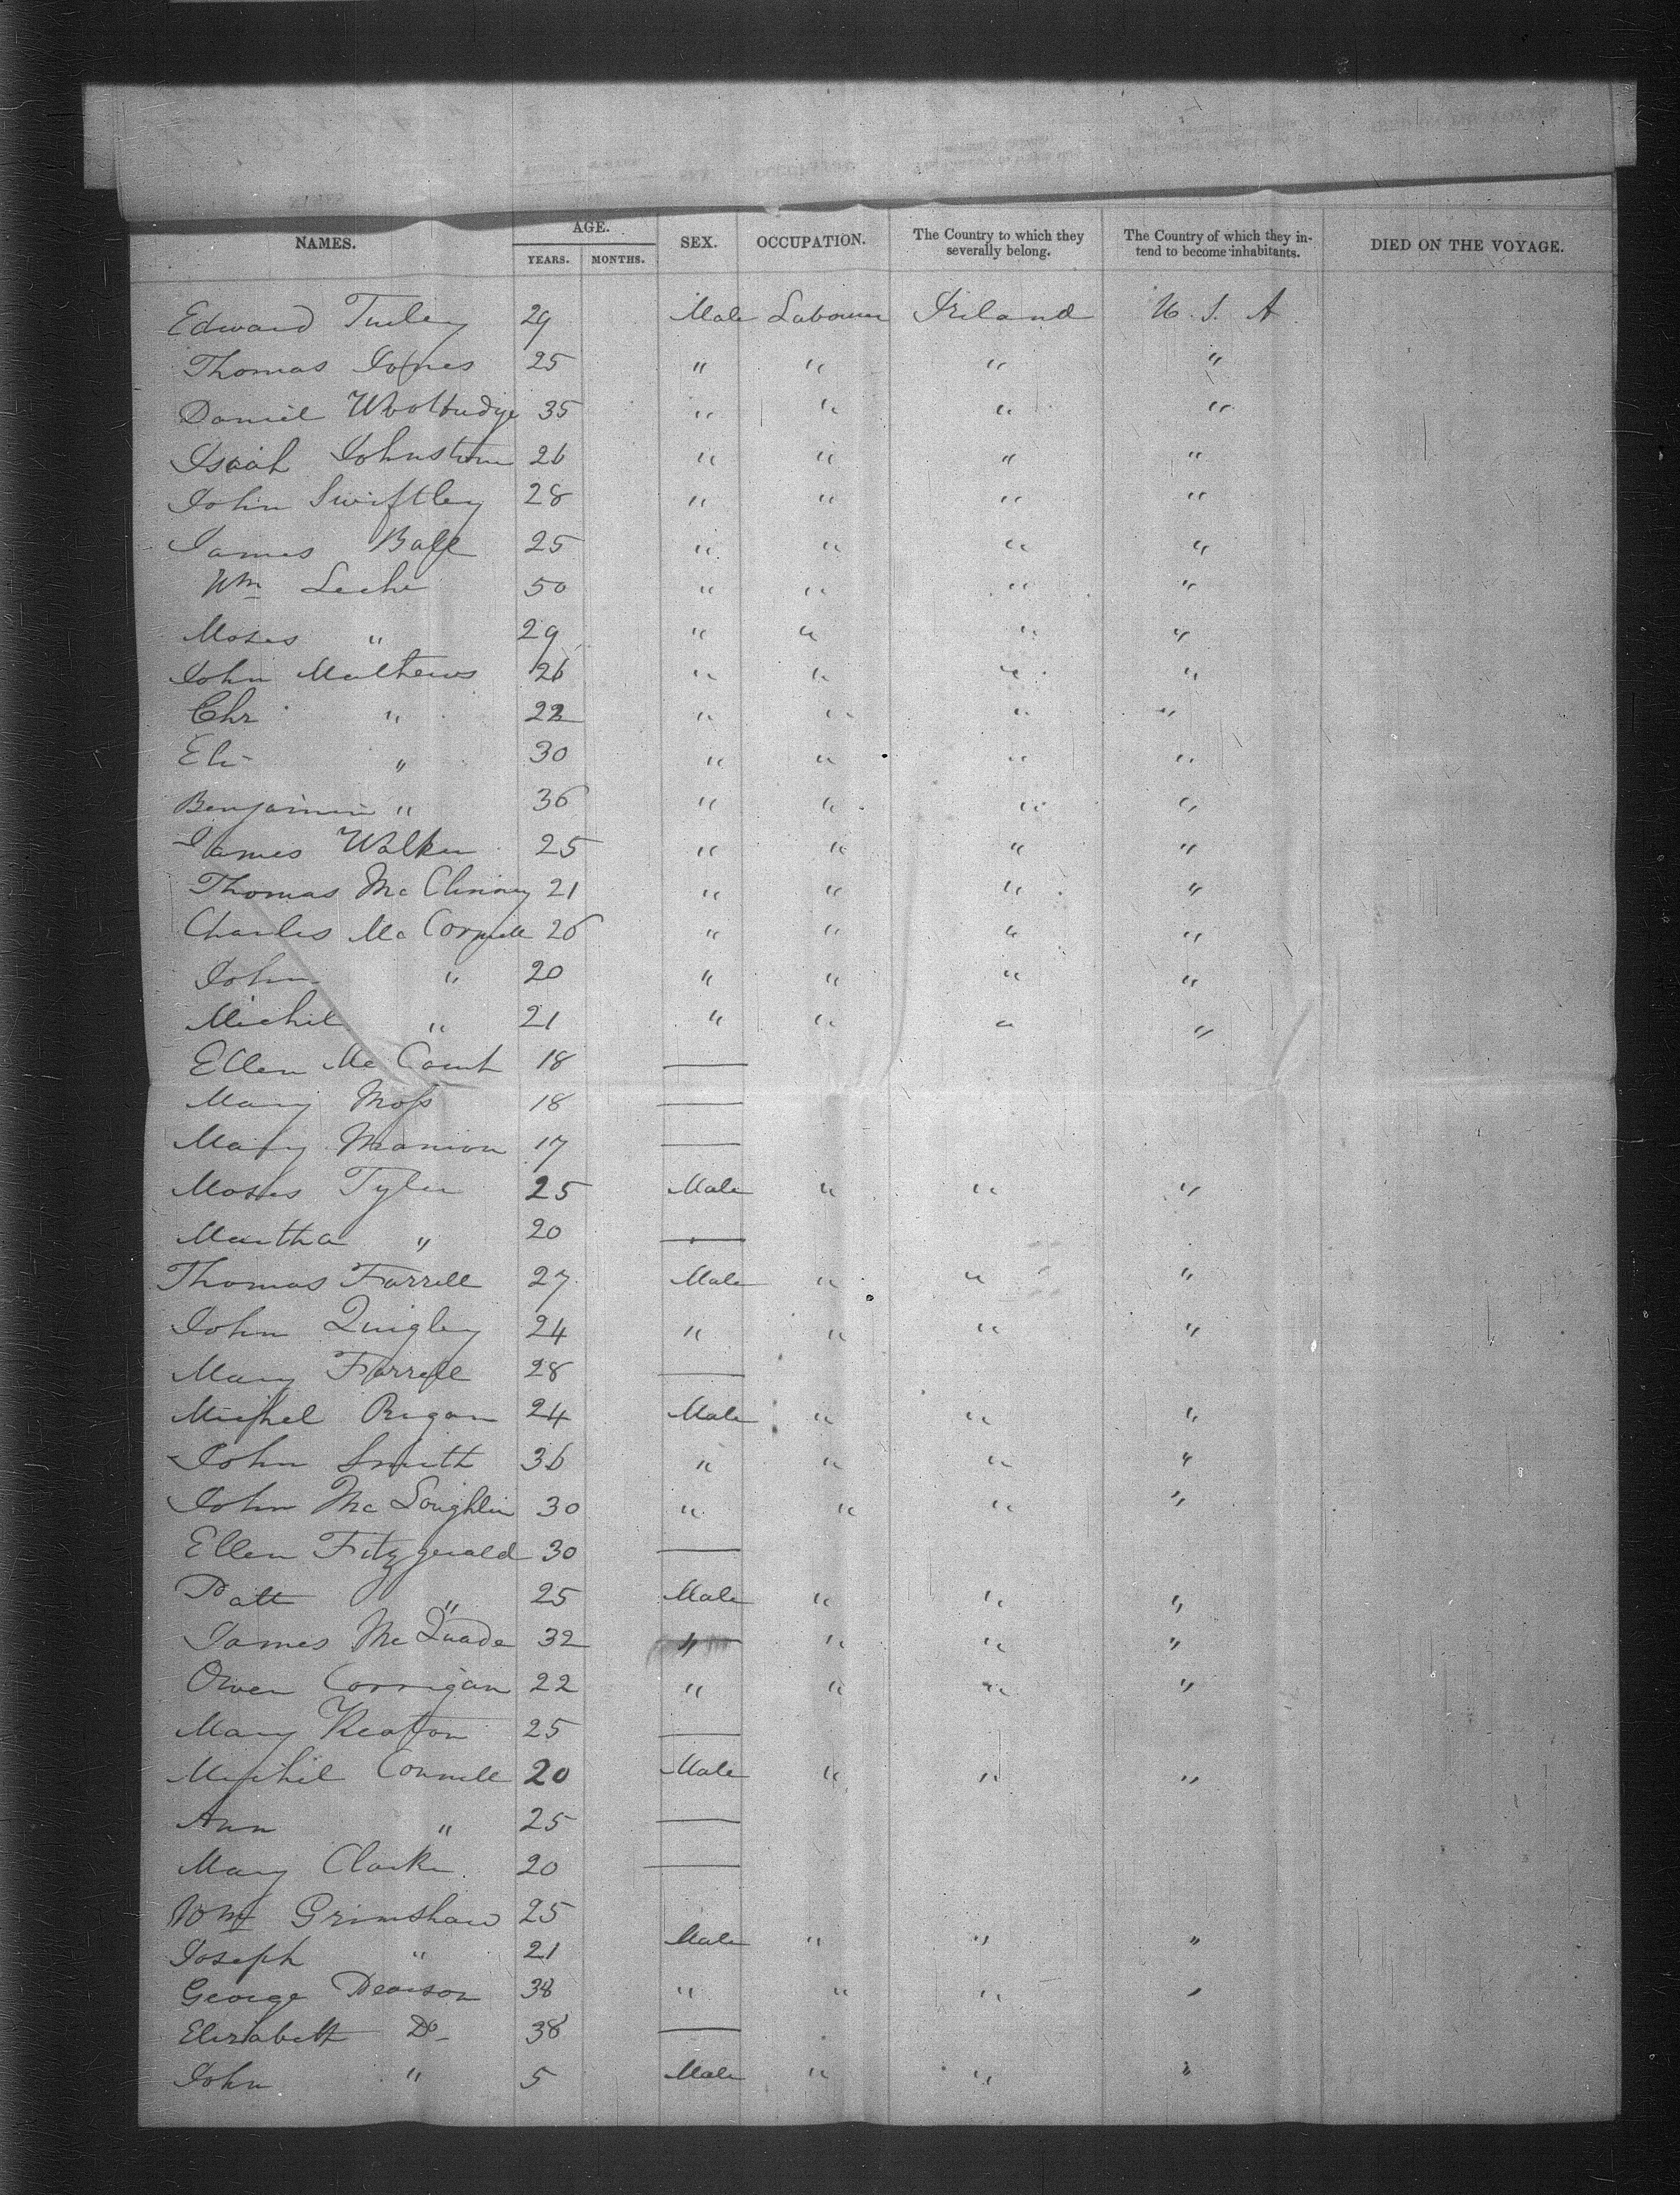 NAMES. AGE. YEARS. MONTHS. SEX. OCCUPATION. The Country to which they severally belong. The Country of which they intend to become inhabitants. DIED ON THE VOYAGE.
Edward Turley 29 Male Labourer Ireland U. S. A
Thomas Jones 25 " " " "
Daniel 35 " " " "
Isaah Johnstone 26 " " " "
John Swiftley 28 " " " "
James Ball 25 " " " "
Wm Leche 50 " " " "
Moses " 29 " " " "
John Mathews 26 " " " "
Chr " 22 " " " "
Eli " 30 " " " "
Benjamin " 36 " " " "
James Walker 25 " " " "
Thomas 21 " " " "
Charles Mc Connell 26 " " " "
John " 20 " " " "
Michil " 21 " " " "
Ellen Mc Court 18 —
Mary Moss 18 —
Mary Manion 17 —
Moses Tyler 25 Male " " "
Martha " 20 —
Thomas Farrell 27 Male " " "
John Quigley 24 " " " "
Mary Farrell 28 —
Michel Regan 24 Male " " "
John Smith 36 " " " "
John Mc Loughlin 30 " " " "
Ellen Fitzgerald 30 —
Patt " 25 Male " " "
James Mc Quade 32 " " " "
Owen Corrigan 22 " " " "
Mary Keaton 25 —
Michil Connell 20 Male " " "
Ann " 25 —
Mary Clarke 20 —
Wm Grimshaw 25
Joseph " 21 Male " " "
George Dearson 38 " " " "
Elizabeth Do 38 —
John " 5 Male " " "